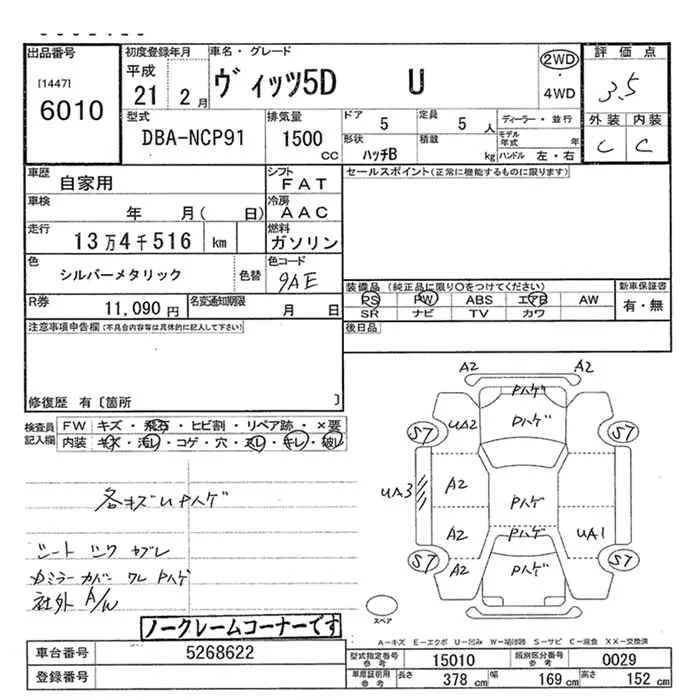 出品番号 初度登録年月 車名・グレード 評価点
[1447]
6010
平成 21 2月 ヴィッツ5D U 2WD・4WD 3.5
型式 排気量 ドア 5 定員 5人 ディーラー・並行 外装 内装
DBA-NCP91 1500cc 形状 ハッチB 積載 kg モデル年式 年 C C
ハンドル 左・右
車歴 自家用 シフト FAT セールスポイント(正常に機能するものに限ります)
車検 年 月( 日) 冷房 AAC
走行 13万4千516 km 燃料 ガソリン
色 シルバーメタリック 色替 色コード 9AE
装備品(純正品に限り○をつけてください) 新車保証書
R券 11,090円 名変通知期限 月 日 PS PW ABS エアB AW 有・無
SR ナビ TV カワ
注意事項申告欄(不具合内容等は具体的に記入して下さい) 後日品
修復歴 有〔箇所 〕
検査員記入欄 FW キズ・飛石・ヒビ割・リペア跡・×要
内装 キズ・汚レ・コゲ・穴・スレ・キレ・破レ
A2 A2
Pハゲ
UA2 Pハゲ
S7 S7
各キズUPハゲ
UA3 A2 Pハゲ
A2 Pハゲ UA1
シート シワ ヤブレ
S7 A2 Pハゲ S7
カバー ワレ Pハゲ
社外 A/W
スペア
ノークレームコーナーです
A-キズ E-エクボ U-凹み W-補修跡 S-サビ C-腐食 XX-交換済
車台番号 5268622 型式指定番号 参考 15010 類別区分番号 参考 0029
登録番号 車庫証明用 参考 長さ 378 cm 幅 169 cm 高さ 152 cm